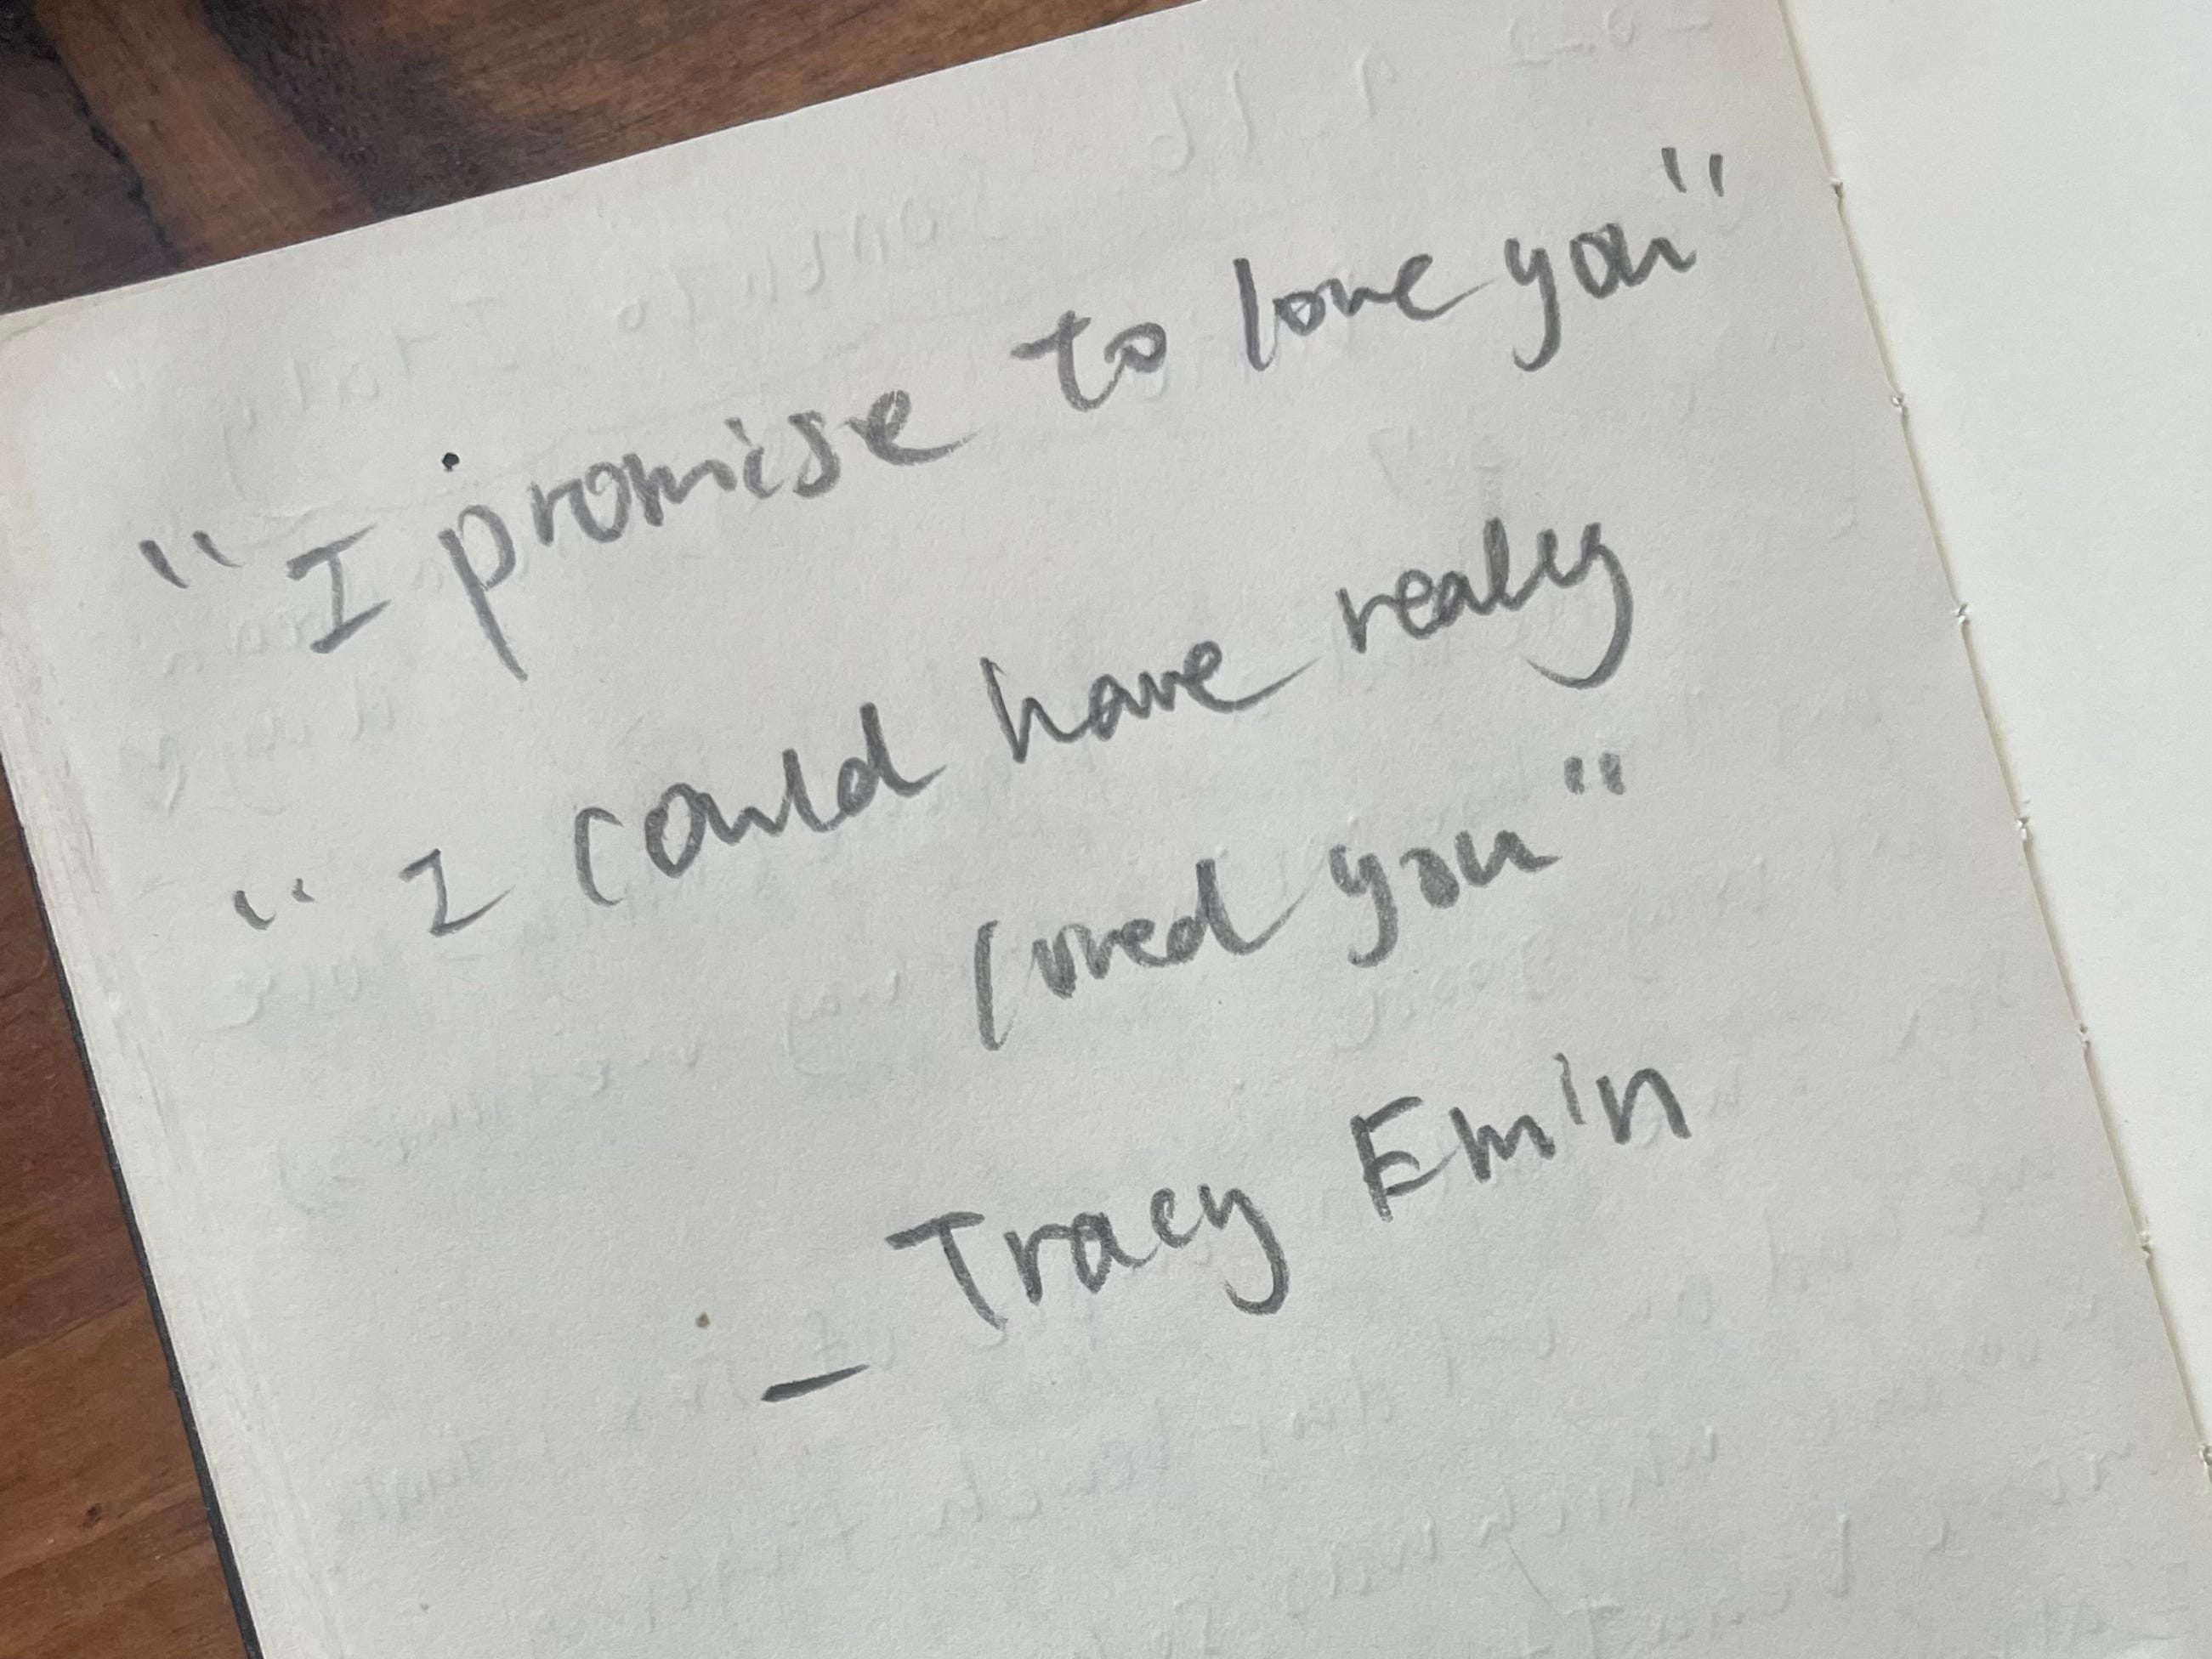 "I promise to love you"
"I could have really
loved you"
— Tracy Emin